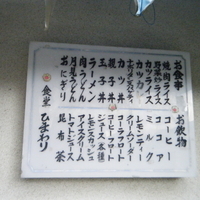 お食事
焼肉ライス
野菜炒めライス
カツライス
カツカレー
カツ丼
親子丼
玉子丼
ラーメン
肉うどん
月見うどん
おにぎり
お飲物
コーヒー
ココア
ミルク
レモンティー
クリームソーダー
コーラフロート
コーヒーフロート
ジュース各種
レモンスカッシュ
アイスクリーム
トマトジュース
昆布茶
食堂ひまわり